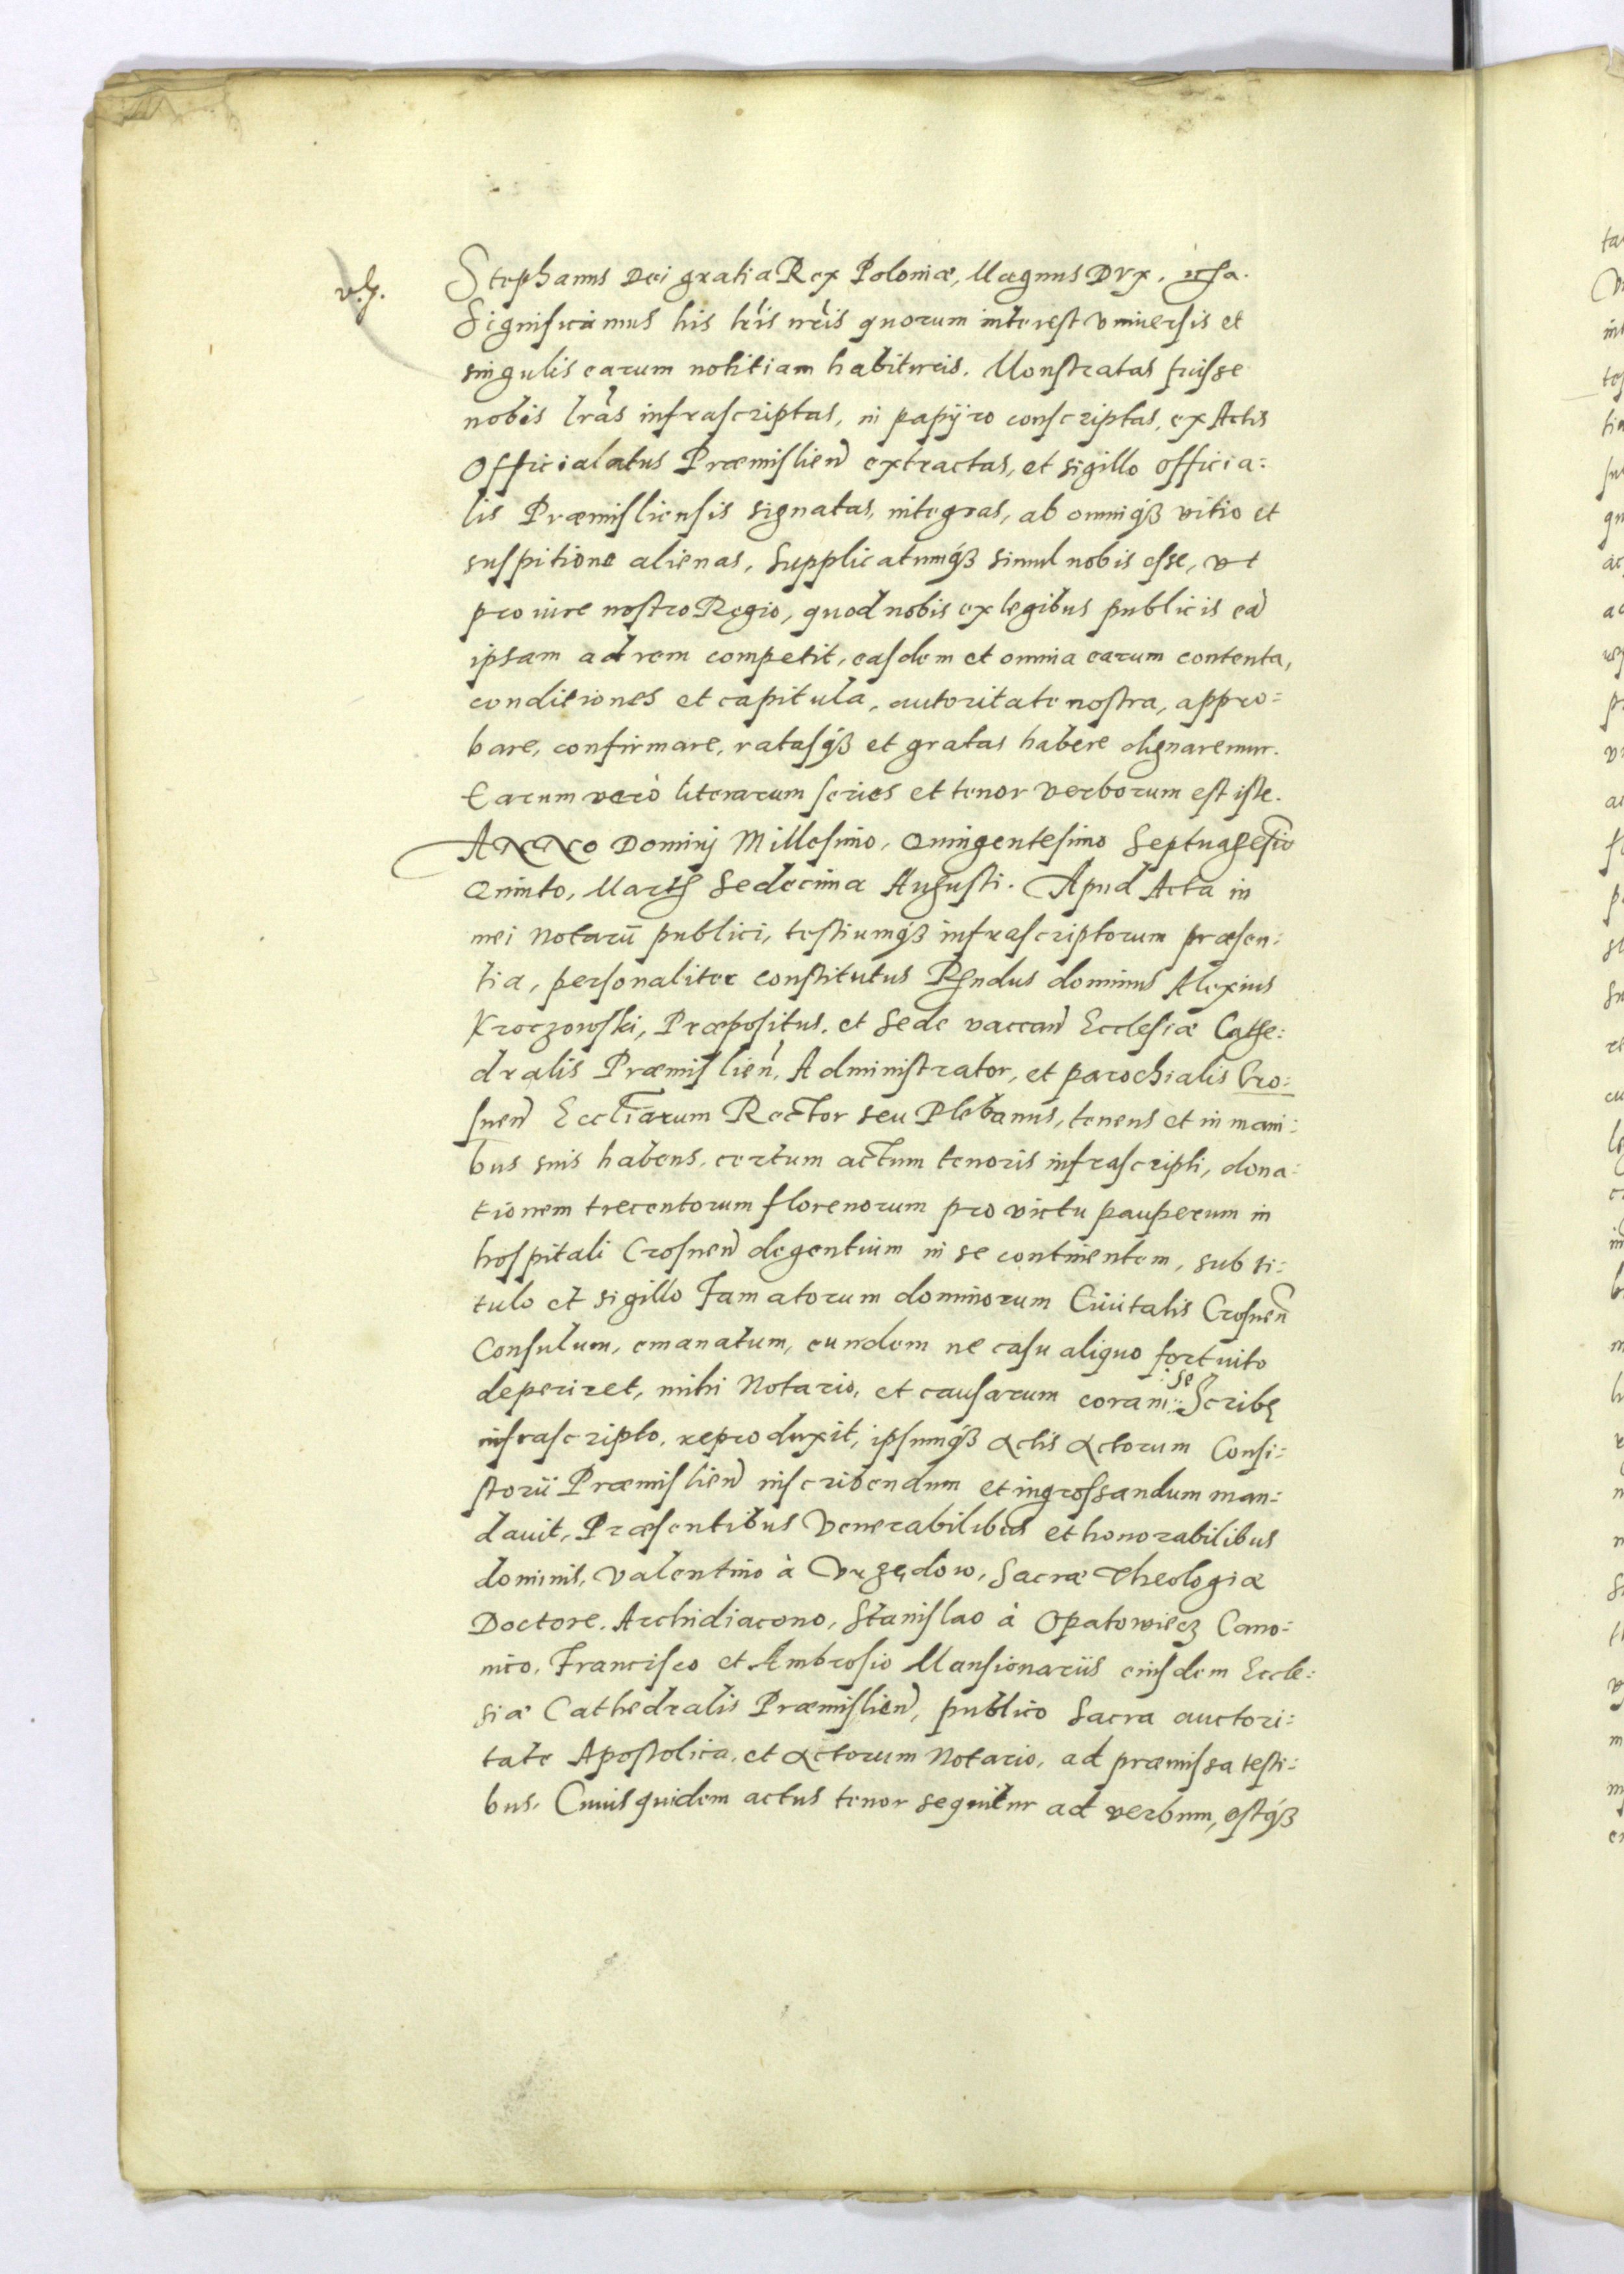 Stephanus Dei gratia Rex Poloniæ, Magnus Dux.
Significamus his lris nris quorum interest vniuersis et
singulis earum notitiam habituris. Monstratas fuisse
nobis lras infrascriptas, in papÿro conscriptas, ex Actis
Officialatus Præmislien extractas, et sigillo officia:
lis Præmisliensis signatas, integras, ab omniqß vitio et
suspitione alienas, Supplicatumqß simul nobis esse, vt
pro iure nostro Regio, quod nobis ex legibus publicis eã
ipsam ad rem competit, easdem et omnia earum contenta,
conditiones et capitula, autoritate nostra, appro:
bare, confirmare, ratasqß et gratas habere dignaremur.
Earum verò literarum series et tenor verborum est iste.
ANNO Dominj Millesimo, Quingentesimo Septuagesio
Quinto, Martis Sedecima Augusti. Apud Acta in
mei Notarii publici, testiumqß infrascriptorum præsen:
tia, personaliter constitutus Rndus dominus Alexius
Kroczowski, Præpositus, et Sede vaccan Ecclesiæ Cathe:
dralis Præmislien, Administrator, et parochialis Cro:
snen Eccliarum Rector seu Plebanus, tenens et in mani:
bus suis habens, certum actum tenoris infrascripti, dona:
tionem trecentorum florenorum pro victu pauperum in
hospitali Crosnen degentium in se continentem, sub ti:
tulo et sigillo Famatorum dominorum Ciuitatis Crosnen
Consulum, emanatum, eundem ne casu aliquo fortuito
deperiret, mihi Notario, et causarum coram se Scribę
infrascripto, reproduxit, ipsumqß actis actorum Consi:
storii Præmislien inscribendum et ingrossandum man:
dauit, Præsentibus Venerabilibus et honorabilibus
dominis, Valentino à Vrzędow, Sacræ Theologiæ
Doctore, Archidiacono, Stanislao à Opatowiecz Cano:
nico, Francisco et Ambrosio Mansionariis eiusdem Eccle:
siæ Cathedralis Præmislien, publico Sacra auctori:
tate Apostolica, et actorum Notario, ad præmissa testi:
bus. Cuius quidem actus tenor sequitur ad verbum, estqß